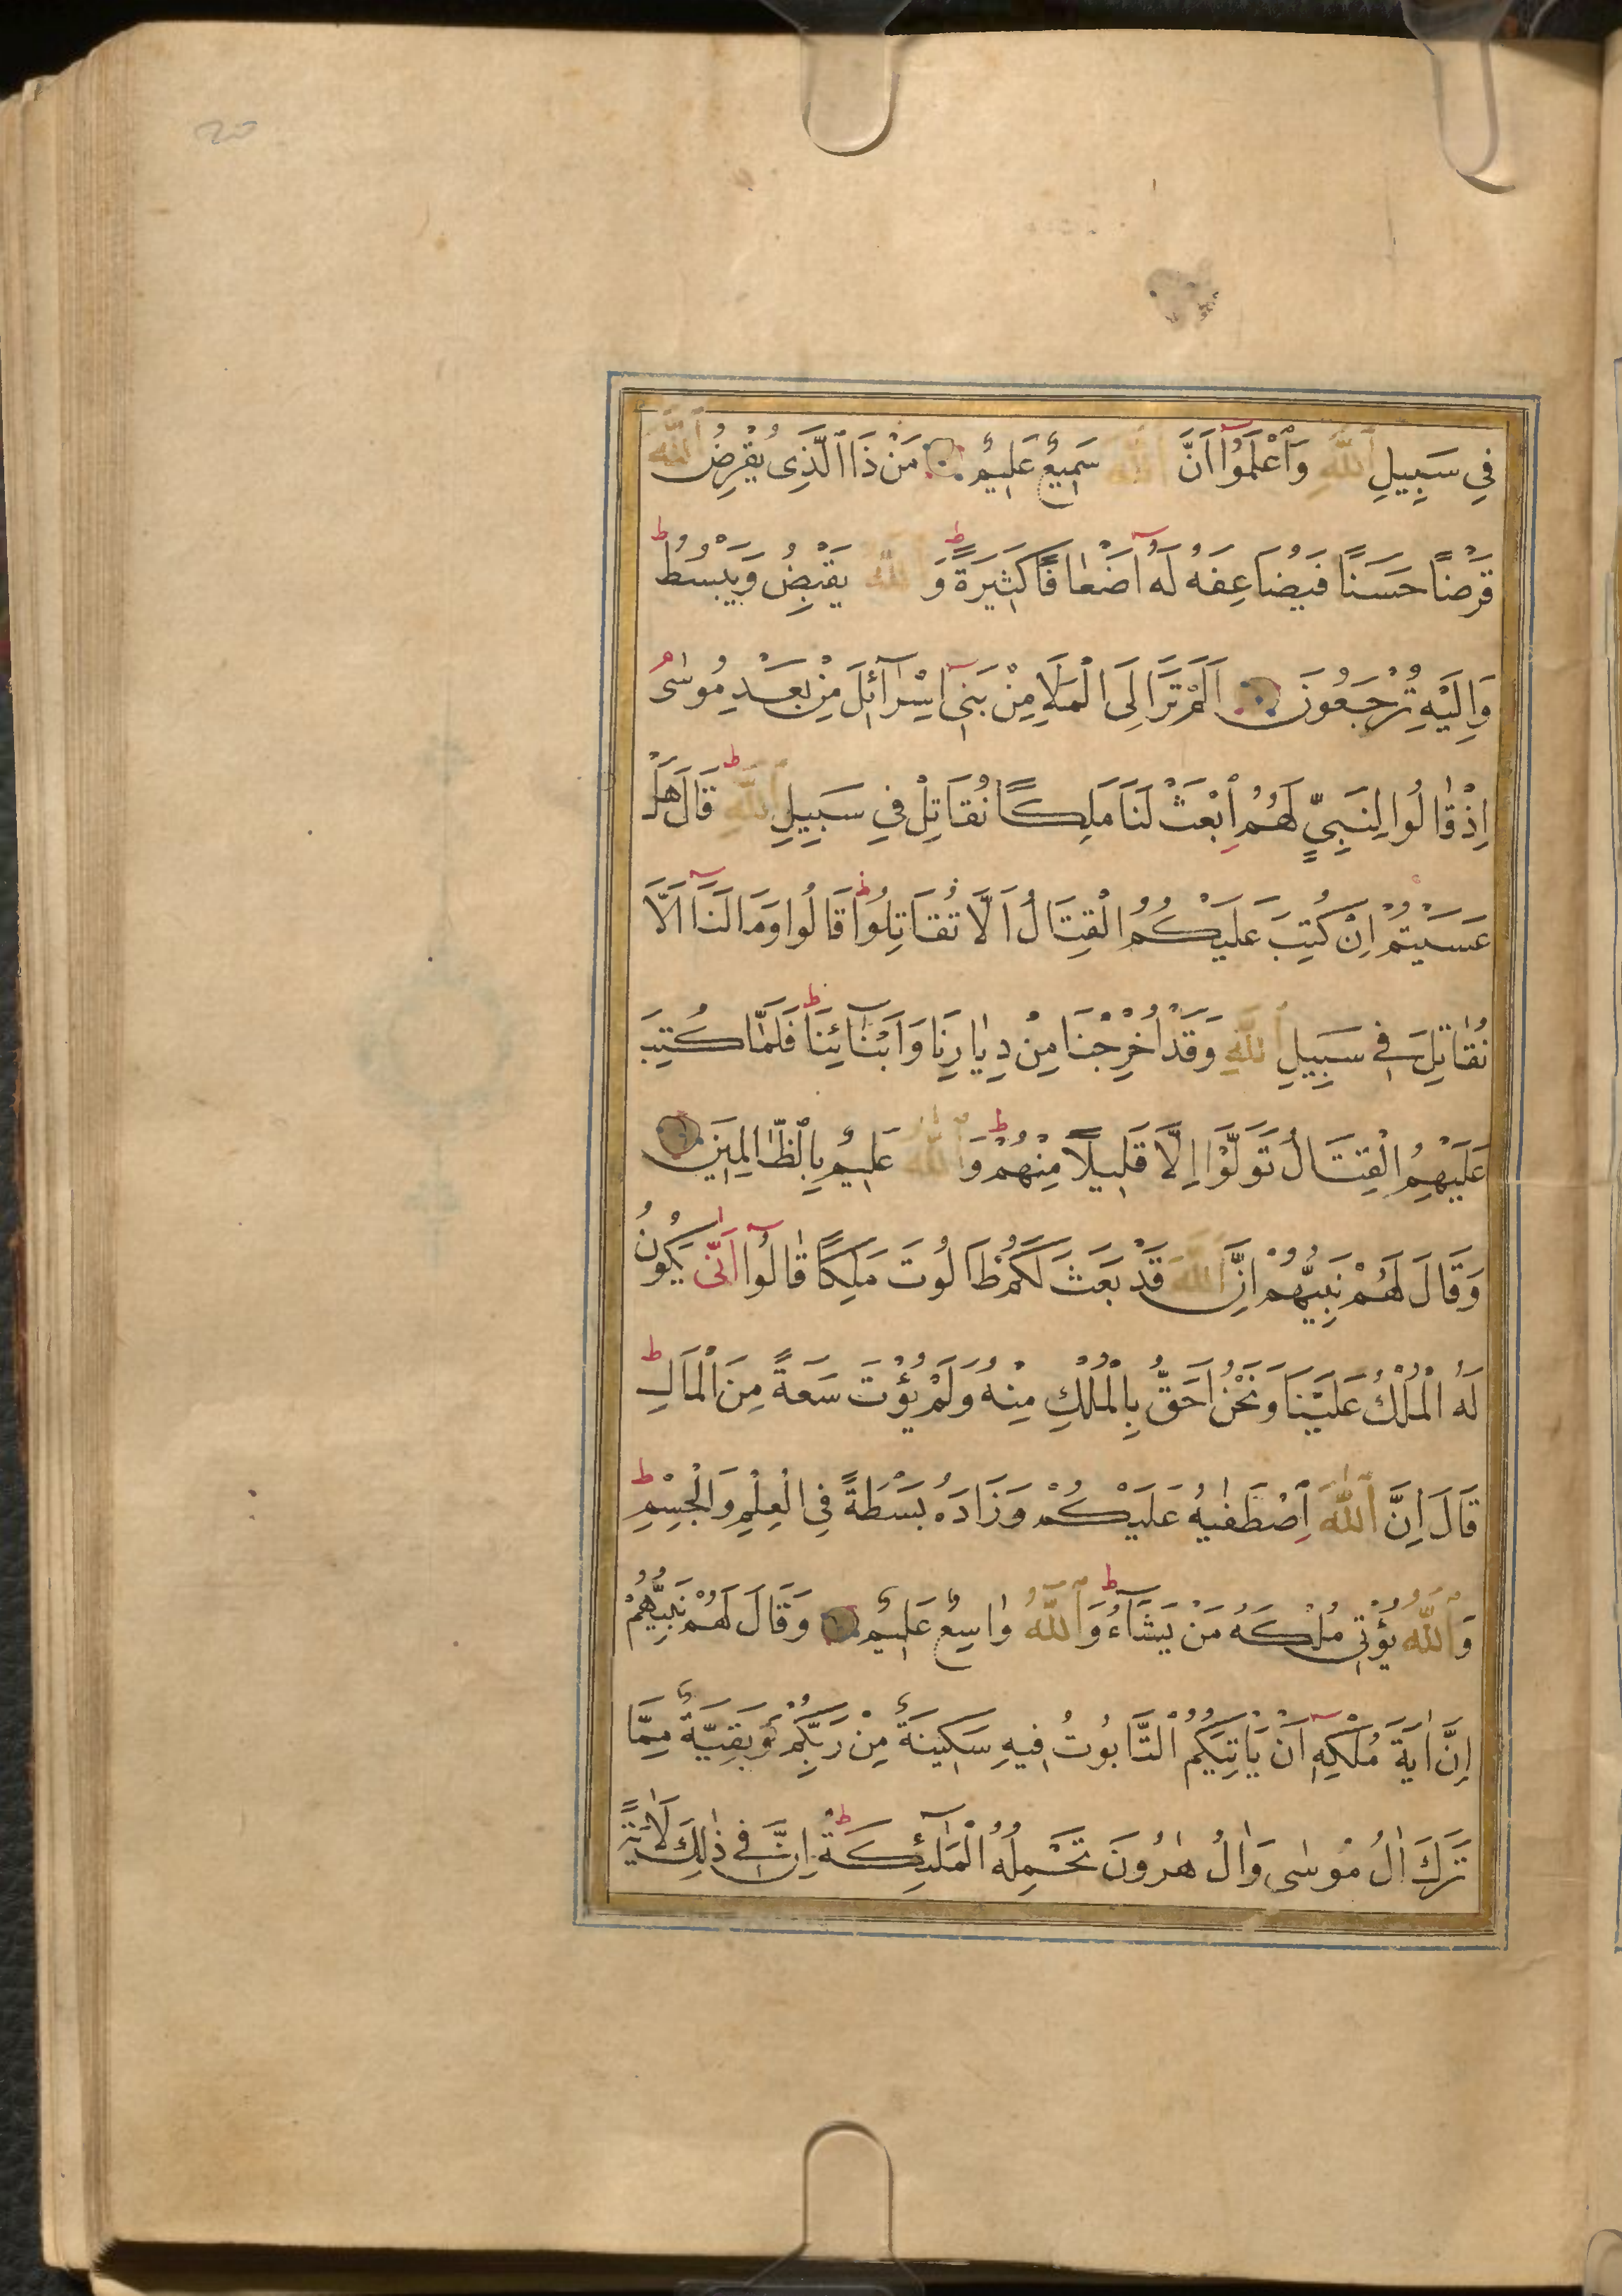 20
فِي سَبِيلِ اللّٰهِ وَاعْلَمُوا اَنَّ اللّٰهَ سَمِيعٌ عَلِيمٌ مَنْ ذَا الَّذِى يُقْرِضُ اللّٰهَ
قَرْضًا حَسَنًا فَيُضَاعِفَهُ لَهُ اَضْعَافًا كَثِيرَةً ط وَاللّٰهُ يَقْبِضُ وَيَبْسُطُ ط
وَاِلَيْهِ تُرْجَعُونَ اَلَمْ تَرَ اِلَى الْمَلَاِ مِنْ بَنِى اِسْرَآئِلَ مِنْ بَعْدِ مُوسٰى م
اِذْ قَالُوا لِنَبِيٍّ لَهُمُ ابْعَثْ لَنَا مَلِكًا نُقَاتِلْ فِي سَبِيلِ اللّٰهِ ط قَالَ هَلْ
عَسَيْتُمْ اِنْ كُتِبَ عَلَيْكُمُ الْقِتَالُ اَلَّا تُقَاتِلُوا ط قَالُوا وَمَا لَنَآ اَلَّا
نُقَاتِلَ فِي سَبِيلِ اللّٰهِ وَقَدْ اُخْرِجْنَا مِنْ دِيَارِنَا وَاَبْنَآئِنَا ط فَلَمَّا كُتِبَ
عَلَيْهِمُ الْقِتَالُ تَوَلَّوْا اِلَّا قَلِيلًا مِنْهُمْ ط وَاللّٰهُ عَلِيمٌ بِالظَّالِمِينَ
وَقَالَ لَهُمْ نَبِيُّهُمْ اِنَّ اللّٰهَ قَدْ بَعَثَ لَكُمْ طَالُوتَ مَلِكًا قَالُوآ اَنّٰى يَكُونُ
لَهُ الْمُلْكُ عَلَيْنَا وَنَحْنُ اَحَقُّ بِالْمُلْكِ مِنْهُ وَلَمْ يُؤْتَ سَعَةً مِنَ الْمَالِ ط
قَالَ اِنَّ اللّٰهَ اصْطَفٰيهُ عَلَيْكُمْ وَزَادَهُ بَسْطَةً فِى الْعِلْمِ وَالْجِسْمِ ط
وَاللّٰهُ يُؤْتِى مُلْكَهُ مَنْ يَشَآءُ ط وَاللّٰهُ وَاسِعٌ عَلِيمٌ وَقَالَ لَهُمْ نَبِيُّهُمْ
اِنَّ اٰيَةَ مُلْكِهِ اَنْ يَاْتِيَكُمُ التَّابُوتُ فِيهِ سَكِينَةٌ مِنْ رَبِّكُمْ وَبَقِيَّةٌ مِمَّا
تَرَكَ اٰلُ مُوسٰى وَاٰلُ هٰرُونَ تَحْمِلُهُ الْمَلٰٓئِكَةُ ط اِنَّ فِي ذٰلِكَ لَاٰيَةً